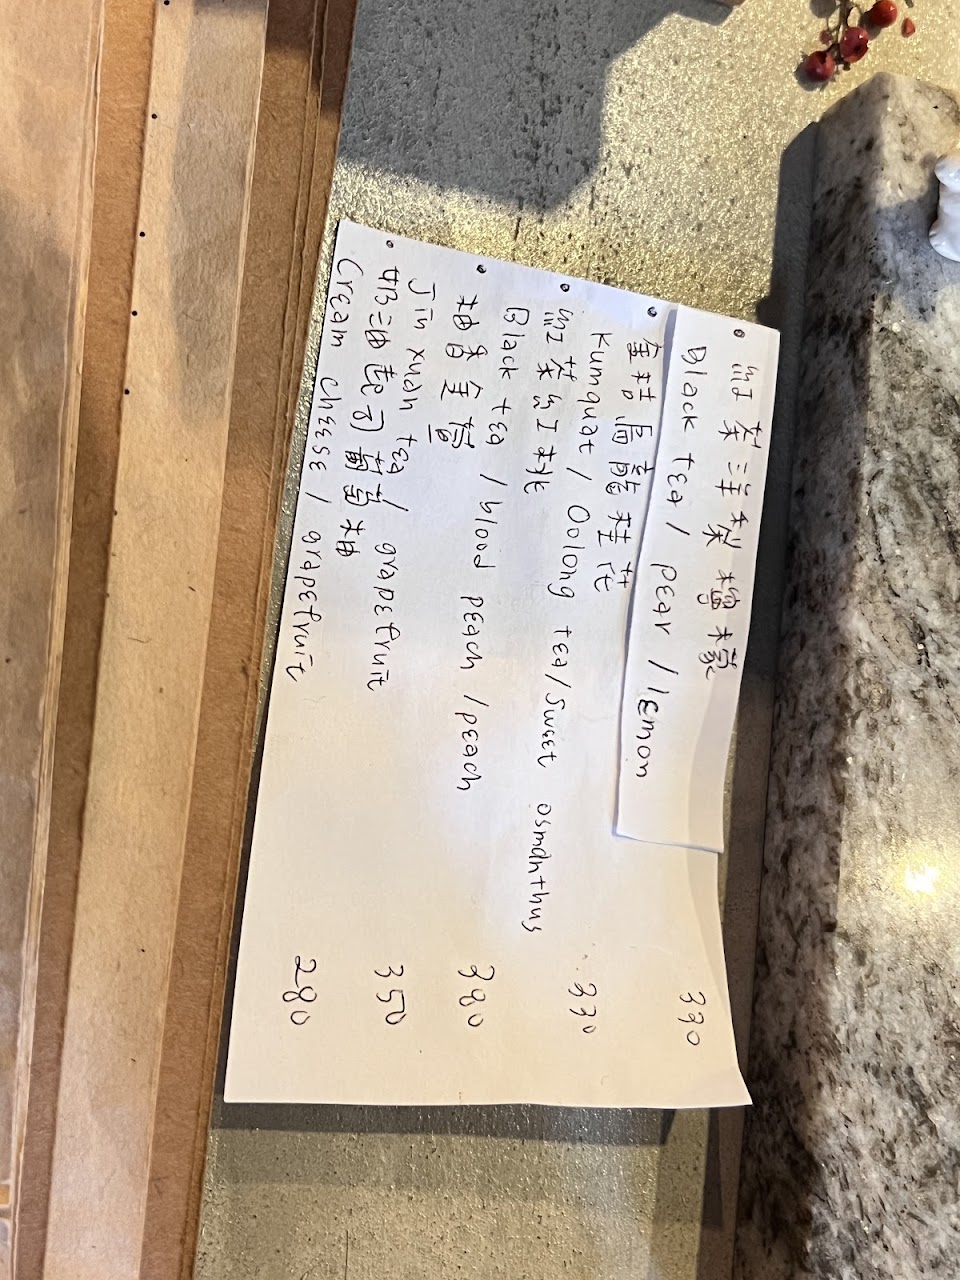 紅茶洋梨檸檬
Black tea / pear / lemon 330
金桔烏龍桂花
Kumquat / Oolong tea / Sweet osmanthus 330
紅茶紅桃
Black tea / blood peach / peach 380
柚香金萱
Jin xuan tea / grapefruit 350
奶油起司葡萄柚
Cream cheese / grapefruit 280